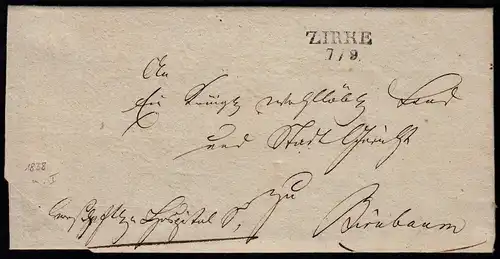 ZIRKE
7/9.
An
Ein Königl. wohllöbl. Land
und Stadt Gericht
zu
Hospital S,
Birnbaum